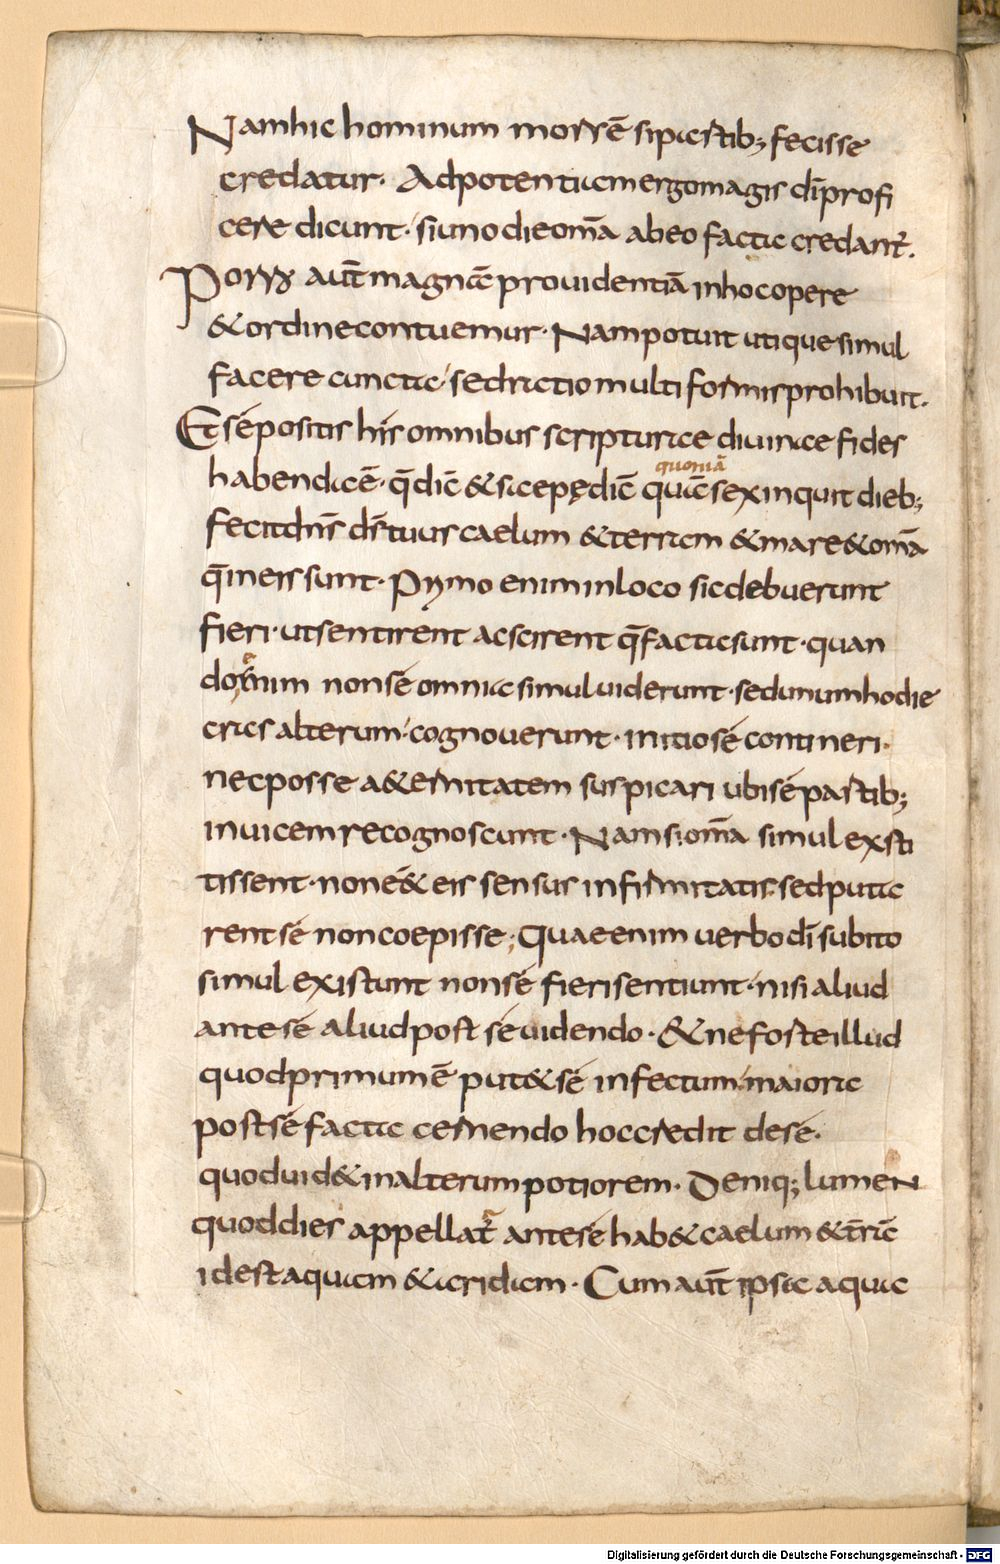 Nam hic hominum morē si p(er) partib; fecisse
credatur. Ad potentiam ergo magis dī profi
cere dicunt. si uno die om̄a ab eo facta credant̄.
Porro aut̄ magnā prouidentiā in hoc opere
& ordine contuemur. Nam potuit utique simul
facere cuncta. sed ratio multiformis prohibuit.
Et sépositis his omnibus scripturae diuinae fides
habenda ē. q̄ dic̄ & saepę dic̄ quia sex inquit dieb;
quoniā
fecit dn̄s ds̄ tuus caelum & terram & mare & om̄a
q̄ in eis sunt. Primo enim in loco sic debuerunt
fieri. ut sentirent ac scirent q̄ facta sunt. quan
do enim non sé omnia simul uiderunt. sed unum hodie
cras alterum. cognouerunt. initio sé contineri.
nec posse a&ernitatem suspicari ubi sé partib;
inuicem recognoscunt. Nam si om̄a simul exsti
tissent. non eé& eis sensus infirmitatis. sed puta
rent sé non coepisse; Quae enim uerbo dī subito
simul existunt non sé fieri sentiunt. nisi aliud
ante sé aliud post sé uidendo. & ne forte illud
quod primum ē put& sé infectum. maiora
post sé facta cernendo hoc credit de sé.
quod uid& in alterum potiorem. Deniq; lumen
quod dies appellat̄ ante sé hab& caelum & t̄rā
id est aquam & aridam. Cum aut̄ ipsa aqua
Digitalisierung gefördert durch die Deutsche Forschungsgemeinschaft - DFG